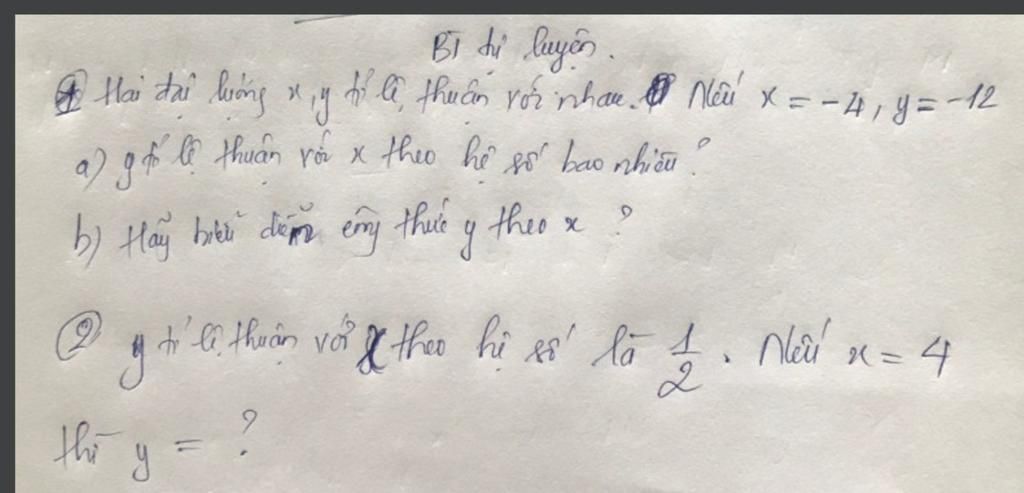 BT tự luyện.
① Hai đại lượng x, y tỉ lệ thuận với nhau. Nếu x = -4, y = -12
a) y tỉ lệ thuận với x theo hệ số bao nhiêu?
b) Hãy biểu diễn công thức y theo x ?
② y tỉ lệ thuận với x theo hệ số là 1/2. Nếu x = 4
thì y = ?